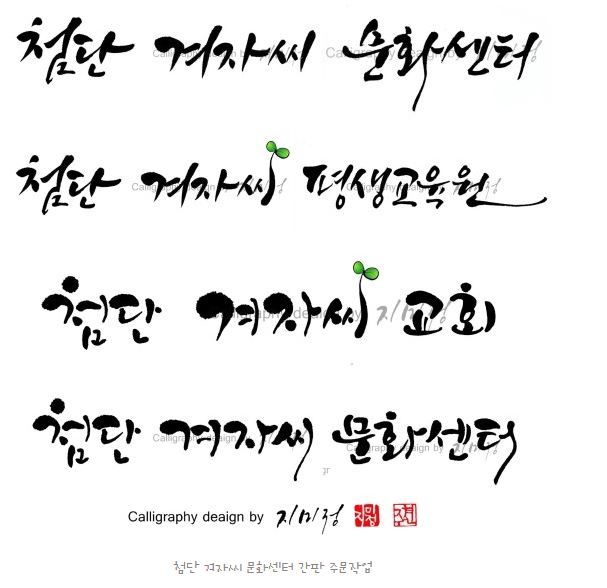 첨단 겨자씨 문화센터
첨단 겨자씨 평생교육원
첨단 겨자씨 교회
첨단 겨자씨 문화센터
Calligraphy deaign by 지미정
첨단 겨자씨 문화센터 간판 주문작업